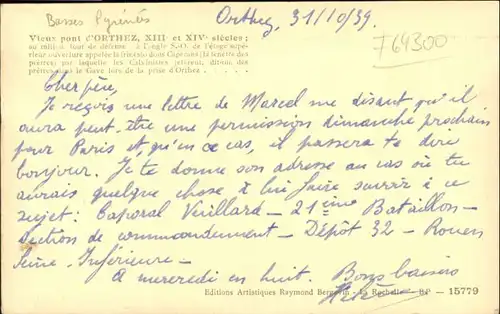 Basses Pyrénés
Orthez, 31/10/39.
F64300
Vieux pont d'ORTHEZ, XIII et XIVᵉ siècles ;
au milieu, tour de défense ; à l'angle S.-O. de l'étage supé-
rieur ouverture appelée la
prêtres) par laquelle les Calvinistes jetèrent, dit-on, des
prêtres dans le Gave lors de la prise d'Orthez . . . . .
Cher père,
Je reçois une lettre de Marcel me disant qu'il
aura peut-être une permission dimanche prochain
pour Paris et qu'en ce cas, il passera te dire
bonjour. Je te donne son adresse au cas où tu
aurais quelque chose à lui faire savoir à ce
sujet : Caporal Vuillard – 21ième Bataillon –
Section de commandement – Dépôt 32 – Rouen
Seine-Inférieure –
A mercredi en huit. Bons baisers
Editions Artistiques Raymond Bergevin - La Rochelle - B.P. - 15779